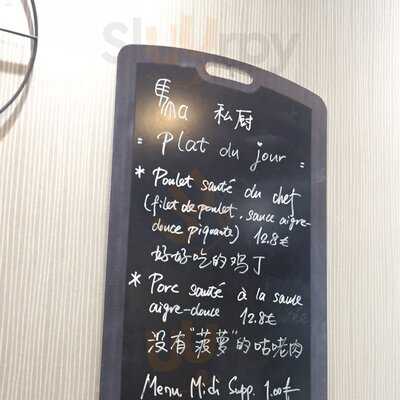 馬a 私厨
= Plat du jour =
* Poulet sauté du chef
(filet de poulet, sauce aigre-
douce piquante) 12.8€
好好吃的鸡丁
* Porc sauté à la sauce
aigre-douce 12.8€
没有"菠萝"的咕咾肉
Menu Midi Supp. 1.00€